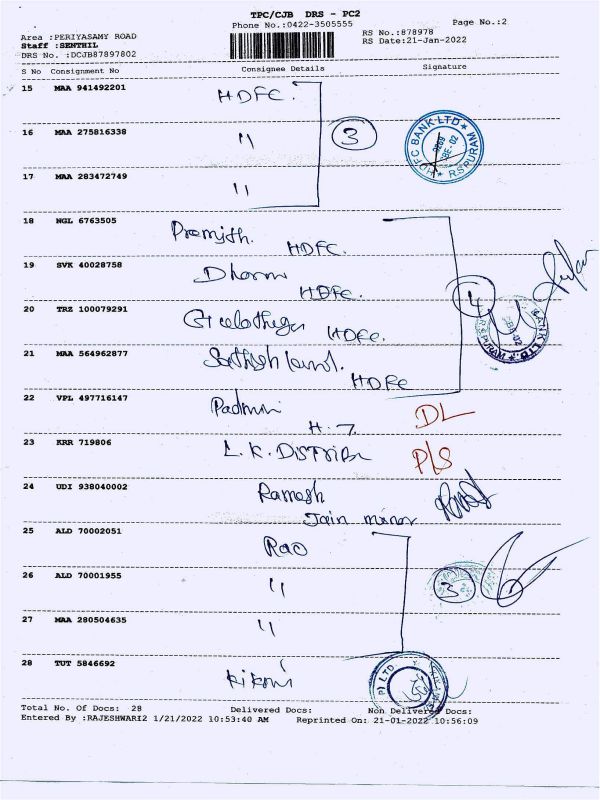 TPC/CJB DRS - PC2
Phone No.:0422-3505555 Page No.:2
Area : PERIYASAMY ROAD RS No.:878978
Staff :SENTHIL RS Date:21-Jan-2022
DRS No. :DCJB87897802
S No Consignment No Consignee Details Signature
15 MAA 941492201 HDFC.
16 MAA 275816338 " 3
HDFC BANK LTD
R S PURAM
17 MAA 283472749 "
18 NGL 6763505 Premjith.
HDFC.
19 SVK 40028758 Dharm
HDFC. 4
20 TRZ 100079291
HDFC.
BANK LTD
R S PURAM
21 MAA 564962877
HDFC
22 VPL 497716147 Padmini DL
H. 7
23 KRR 719806 L.K. P/S
24 UDI 938040002 Ramesh
Jain minor
25 ALD 70002051 Rao
26 ALD 70001955 " 3
27 MAA 280504635 "
28 TUT 5846692 kikani
(P) LTD
Total No. Of Docs: 28 Delivered Docs: Non Delivered Docs:
Entered By :RAJESHWARI2 1/21/2022 10:53:40 AM Reprinted On: 21-01-2022 10:56:09